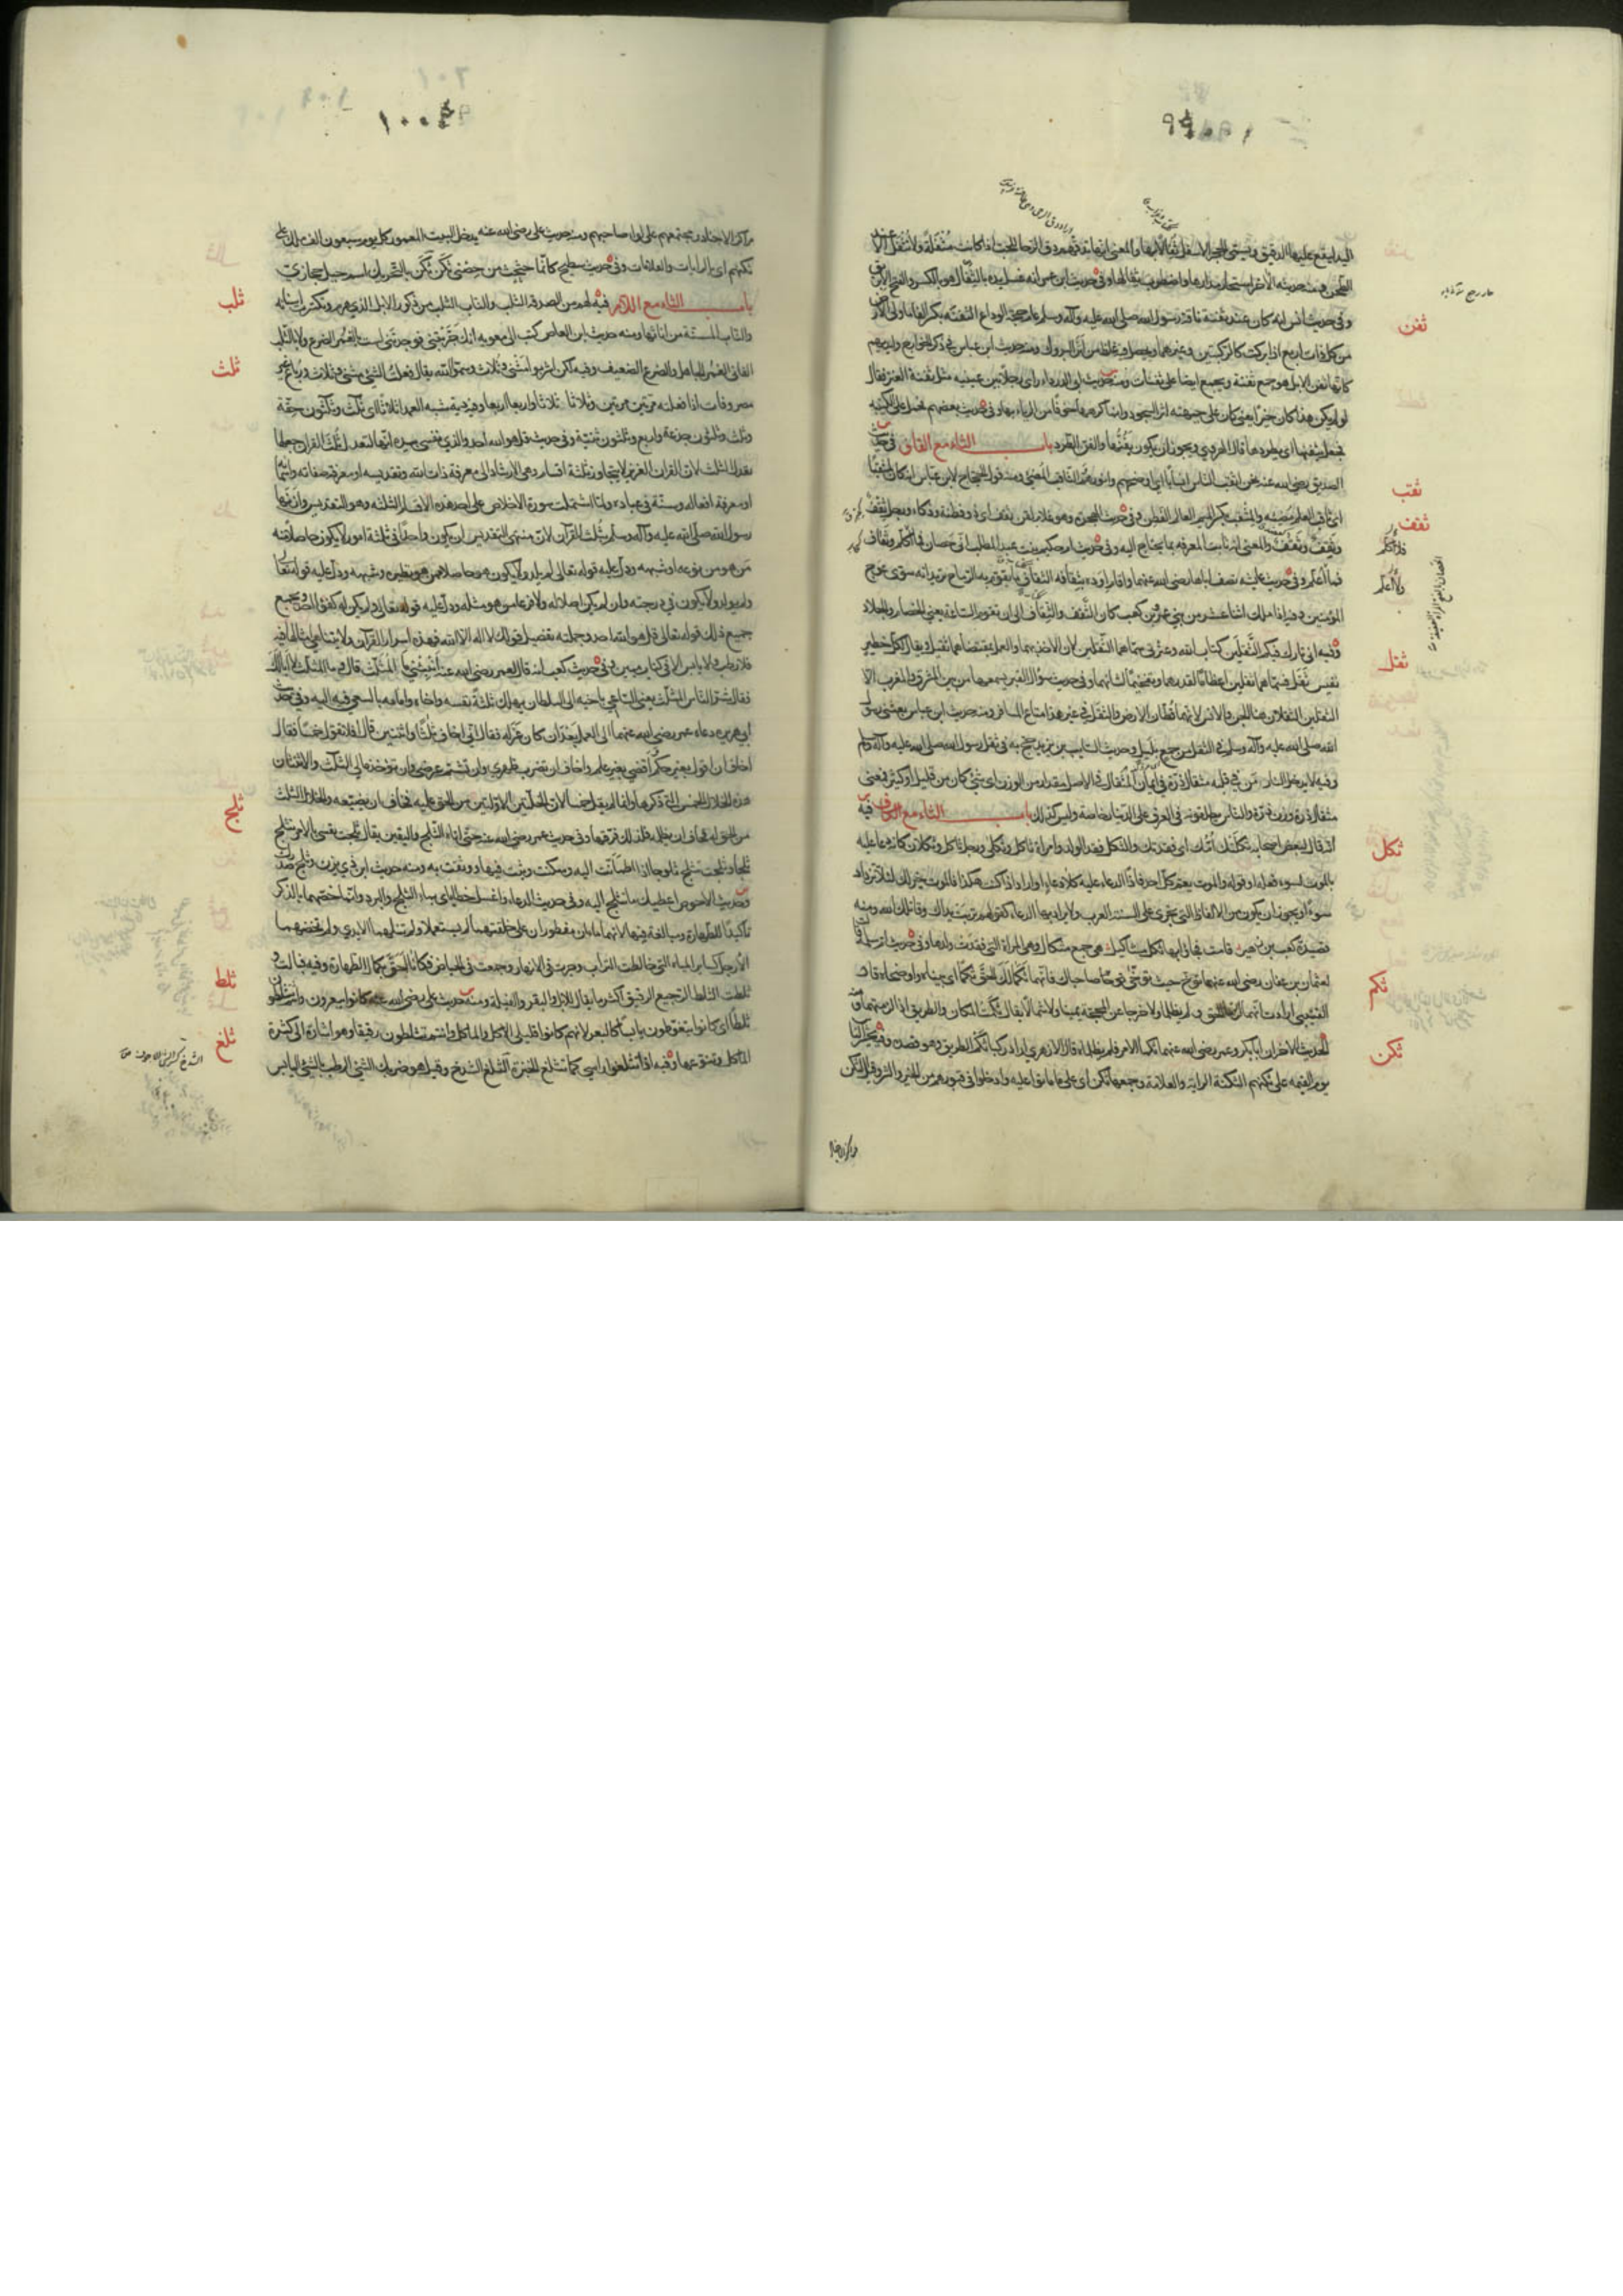 اليد ليقع عليها الدقيق ويسمى الحجر الاسفل ثفالا بها والمعنى انها تدقهم دق الرحا للحب اذا كانت مثفلة ولا تثفل الا عند
الطحن ومنه حديثه الآخر استحار مدارها واضطرب ثفالها وفي حديث ابن عمر انه غسل يده بالثفال هو بالكسر والفتح الابريق
ثفن
وفي حديث انس انه كان عند ثفنة ناقة رسول الله صلى الله عليه وآله وسلم عام حجة الوداع الثفنة بكسر الفاء ما ولي الارض
من كل ذات اربع اذا بركت كالركبتين وغيرهما ويحصل فيه غلظ من اثر البروك ومنه حديث ابن عباس في ذكر الخوارج وايديهم
كانها ثفن الابل هو جمع ثفنة ويجمع ايضا على ثفنات ومنه حديث ابي الدرداء راى رجلا بين عينيه مثل ثفنة العنز فقال
لو لم يكن هذا كان خيرا يعني كان على جبهته اثر السجود وانما كرهها خوفا من الرياء بها وفي حديث بعضهم فحمل على الكتيبة
فجعل يثفنها اي يطردها قال الهروي ويجوز ان يكون يفنها والفن الطرد باب الثاء مع القاف في حديث
ثقب
الصديق رضي الله عنه نحن اثقب الناس انسابا اي اوضحهم وانورهم الثاقب المضيء ومنه قول الحجاج لابن عباس ان كان لمثقبا
ثقف
اي ثاقب العلم مضيئه والمثقب بكسر الميم العالم الفطن وفي حديث الهجرة وهو غلام لقن ثقف اي ذو فطنة وذكاء ورجل ثقف
وثقف وثقف والمعنى انه ثابت المعرفة بما يحتاج اليه وفي حديث ام حكيم بنت عبد المطلب اني حصان فما اكلم وثقاف
فما اعلم وفي حديث عائشة تصف اباها رضي الله عنهما واقام اوده بثقافه الثقاف ما يقوم به الرماح تريد انه سوى عوج
المؤمنين وفيه اذا ملك اثنا عشر من بني عمرو بن كعب كان الثقف والثقاف الى ان تقوم الساعة يعني الخصام والجلاد
ثقل
وفيه اني تارك فيكم الثقلين كتاب الله وعترتي سماهما الثقلين لان الاخذ بهما والعمل بهما ثقيل ويقال لكل خطير
نفيس ثقل فسماهما ثقلين اعظاما لقدرهما وتفخيما لشانهما وفي حديث سؤال القبر يسمعها من بين المشرق والمغرب الا
الثقلين الثقلان هما الجن والانس لانهما قطان الارض والثقل في غير هذا متاع المسافر ومنه حديث ابن عباس بعثني رسول
الله صلى الله عليه وآله وسلم في الثقل من جمع بليل وحديث السائب بن يزيد حج به في ثقل رسول الله صلى الله عليه وآله وسلم
وفيه لا يدخل النار من في قلبه مثقال ذرة من ايمان المثقال في الاصل مقدار من الوزن اي شيء كان من قليل او كثير فمعنى
مثقال ذرة وزن ذرة والناس يطلقونه في العرف على الدينار خاصة وليس كذلك باب الثاء مع الكاف فيه
ثكل
انه قال لبعض اصحابه ثكلتك امك اي فقدتك والثكل فقد الولد وامراة ثاكل وثكلى ورجل ثاكل وثكلان كانه دعا عليه
بالموت لسوء فعله او قوله والموت يعم كل احد فاذا الدعاء عليه كلا دعاء او اراد اذا كنت هكذا فالموت خير لك لئلا تزداد
سوءا ويجوز ان يكون من الالفاظ التي تجري على السنة العرب ولا يراد بها الدعاء كقولهم تربت يداك وقاتلك الله ومنه
قصيدة كعب بن زهير قامت فجاوبها نكد مثاكيل هي جمع مثكال وهي المراة التي فقدت ولدها وفي حديث ام سلمة قالت
ثكم
لعثمان بن عفان رضي الله عنهما توخ حيث توخى صاحباك فانهما ثكما لك الحق ثكما اي بيناه واوضحاه قال
القتيبي ارادت انهما لزما الحق ولم يظلما ولا خرجا عن المحجة يمينا ولا شمالا يقال ثكمت المكان والطريق اذا لزمتهما ومنه
ثكن
الحديث الآخر ان ابا بكر وعمر رضي الله عنهما ثكما الامر فلم يظلماه قال الازهري اراد ركبا ثكم الطريق وهو قصده وفيه يحشر الناس
يوم القيمة على ثكنهم الثكنة الراية والعلامة وجمعها ثكن اي على ما ماتوا عليه وادخلوا في قبورهم من الخير والشر وقيل الثكن
مراكز الاجناد
١٠٠
مراكز الاجناد ومجتمعهم على لواء صاحبهم ومنه حديث علي رضي الله عنه يدخل البيت المعمور كل يوم سبعون الف ملك على
ثكنهم اي بالرايات والعلامات وفي حديث سطيح كانما حثحث من حضني ثكن ثكن بالتحريك اسم جبل حجازي
ثلب
باب الثاء مع اللام فيه لهم من الصدقة الثلب والناب الثلب من ذكور الابل الذي هرم وتكسرت اسنانه
والناب المسنة من اناثها ومنه حديث ابن العاص كتب الى معوية انك جربتني فوجدتني لست بالغمر الضرع ولا بالثلب
ثلث
الفاني الغمر الجاهل والضرع الضعيف وفيه لكن اشربوا مثنى وثلاث وسموا الله يقال فعلت الشيء مثنى وثلاث ورباع غير
مصروفات اذا فعلته مرتين مرتين وثلاثا ثلاثا واربعا اربعا وفي دية شبه العمد اثلاثا اي ثلث وثلثون حقة
وثلث وثلثون جذعة واربع وثلثون ثنية وفي حديث قل هو الله احد والذي نفسي بيده انها لتعدل ثلث القرآن جعلها
تعدل الثلث لان القرآن العزيز لا يتجاوز ثلثة اقسام وهي الارشاد الى معرفة ذات الله وتقديسه او معرفة صفاته واسمائه
او معرفة افعاله وسنته في عباده ولما اشتملت سورة الاخلاص على احد هذه الاقسام الثلثة وهو التقديس وازنها
رسول الله صلى الله عليه وآله وسلم بثلث القرآن لان منتهى التقديس ان يكون واحدا في ثلثة امور لا يكون حاصلا منه
من هو من نوعه او شبهه ودل عليه قوله تعالى لم يلد ولا يكون هو حاصلا ممن هو نظيره وشبهه ودل عليه قوله تعالى
ولم يولد ولا يكون في درجته وان لم يكن اصلا له ولا فرعا من هو مثله ودل عليه قوله تعالى ولم يكن له كفوا احد ويجمع
جميع ذلك قوله تعالى قل هو الله احد وجملته تفصيل قولك لا اله الا الله فهذه اسرار القرآن ولا يتناهى امثالها فيه
فلا رطب ولا يابس الا في كتاب مبين وفي حديث كعب انه قال لعمر رضي الله عنه انبئني ما المثلث قال وما المثلث لا ابا لك
فقال شر الناس المثلث يعني الساعي باخيه الى السلطان يهلك ثلثة نفسه واخاه وامامه بالسعي فيه اليه وفي حديث
ابي هريرة دعاه عمر رضي الله عنهما الى العمل بعد ان كان عزله فقال اني اخاف ثلثا واثنتين قال افلا تقول خمسا فقال
اخاف ان اقول بغير حكم واقضي بغير علم واخاف ان يضرب ظهري وان يشتم عرضي وان يؤخذ مالي الثلث والاثنتان
ثلج
هذه الخلال الخمس التي ذكرها وانما لم يقل خمسا لان الخلتين الاولتين من الحق عليه فخاف ان يضيعه والخلال الثلث
من الحق له فخاف ان يظلم فلذلك فرقها وفي حديث عمر رضي الله عنه حتى اتاه الثلج واليقين يقال ثلجت نفسي بالامر تثلج
ثلجا وثلجت تثلج ثلوجا اذا اطمأنت اليه وسكنت وثبت فيها ووثقت به ومنه حديث ابن ذي يزن وثلج صدرك
وحديث الاحوص اعطيك ما تثلج اليه وفي حديث الدعاء واغسل خطاياي بماء الثلج والبرد وانما خصهما بالذكر
تاكيدا للطهارة ومبالغة فيها لانهما ماءان مفطوران على خلقتهما لم يستعملا ولم تنلهما الايدي ولم تخضهما
ثلط
الارجل كسائر المياه التي خالطت التراب وجرت في الانهار وجمعت في الحياض فكانا احق بكمال الطهارة وفيه فبالت و
ثلطت الثلط الرجيع الرقيق اكثر ما يقال للابل والبقر والفيلة ومنه حديث علي رضي الله عنه كانوا يبعرون وانتم تثلطون
ثلغ
ثلطا اي كانوا يتغوطون يابسا كالبعر لانهم كانوا قليلي الاكل والماكل وانتم تثلطون رقيقا وهو اشارة الى كثرة
الماكل وتنوعها وفيه اذا يثلغوا راسي كما تثلغ الخبزة الثلغ الشدخ وقيل هو ضربك الشيء الرطب بالشيء اليابس